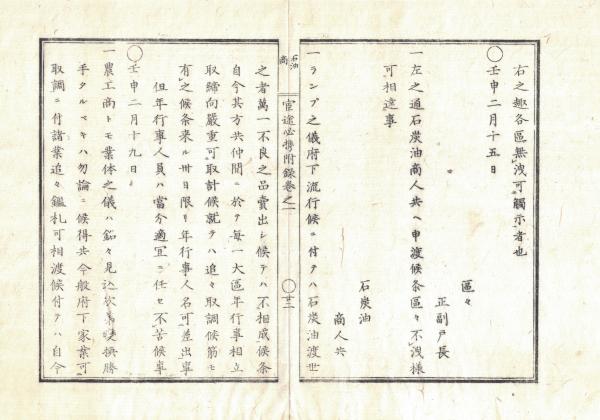 右之趣各區無洩可觸示者也
〇壬申二月十五日
區々
正副戸長
一左之通石炭油商人共ヘ申渡候条區々不洩樣
可相達事
石炭油
商人共
一ランプ之儀府下流行候ニ付テハ石炭油渡世
石油商
官途必携附録巻之一
〇廿二
之者萬一不良之品賣出シ候テハ不相成候条
自今其方共仲間ニ於テ每一大區年行事相立
取締向嚴重可取計候就テハ追々取調候筋モ
有之候条来ル卅日限リ年行事人名可差出事
但年行事人員ハ當分適宜ニ任セ不苦候事
〇壬申二月十九日
一農工商トモ業体之儀ハ銘々見込次第変換勝
手タルヘキハ勿論ニ候得共今般府下家業可
取調ニ付諸業追々鑑札可相渡候付テハ自今